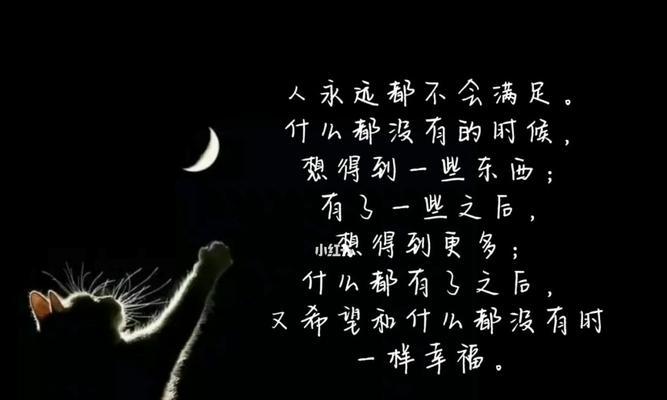 人永远都不会满足。
什么都没有的时候，
想得到一些东西；
有了一些之后，
想得到更多；
什么都有了之后，
又希望和什么都没有时
一样幸福。
小红书